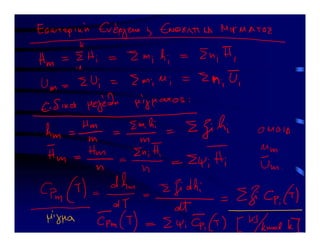 Εσωτερική Ενέργεια & Ενθαλπία Μίγματος
H_m = Σ H_i = Σ m_i h_i = Σ n_i H̅_i
U_m = Σ U_i = Σ m_i u_i = Σ n_i U̅_i
Ειδικά μεγέθη μίγματος:
h_m = H_m / m = Σ m_i h_i / m = Σ ξ_i h_i
ομοια
H̅_m = H_m / n = Σ n_i H̅_i / n = Σ ψ_i H̅_i
u_m
U̅_m
C_Pm (T) = dh_m / dT = Σ ξ_i dh_i / dT = Σ ξ_i C_Pi (T)
μίγμα
C̅_Pm (T) = Σ ψ_i C̅_Pi (T) [kJ/kmol K]